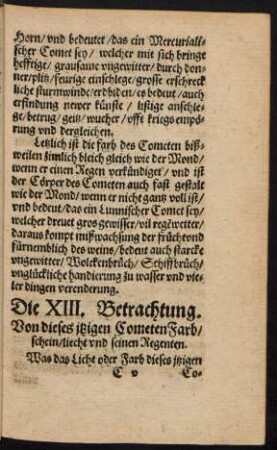 Horn/ vnd bedeutet/ das ein Mercuriali-
scher Comet sey/ welcher mit sich bringe
hefftige/ grausame vngewitter/ durch don-
ner/plitz/feurige einschlege/grosse erschreck
liche sturmwinde/erdbiden/es bedeut/auch
erfindung newer künste/ listige anschle-
ge/betrug/ geitz/ wucher/ offt kriegs empö-
rung vnd dergleichen.
Letzlich ist die farb des Cometen biß-
weilen zimlich bleich gleich wie der Mond/
wenn er einen Regen verkündiget/ vnd ist
der Cörper des Cometen auch fast gestalt
wie der Mond/ wenn er nicht gantz voll ist/
vnd bedeut/das ein Lunnischer Comet sey/
welcher dreuet gros gewisser/vil regẽwetter/
daraus kompt mißwachsung der frücht vnd
fürnemblich des weins/bedeut auch starcke
vngewitter/ Wolckenbrüch/ Schiffbrüch/
vnglückliche handierung zu wasser vnd vie-
ler dingen verenderung.
Die XIII. Betrachtung.
Von dieses jtzigen Cometen Farb/
schein/liecht vnd seinen Regenten.
Was das Licht oder Farb dieses jtzigen
C v Co-